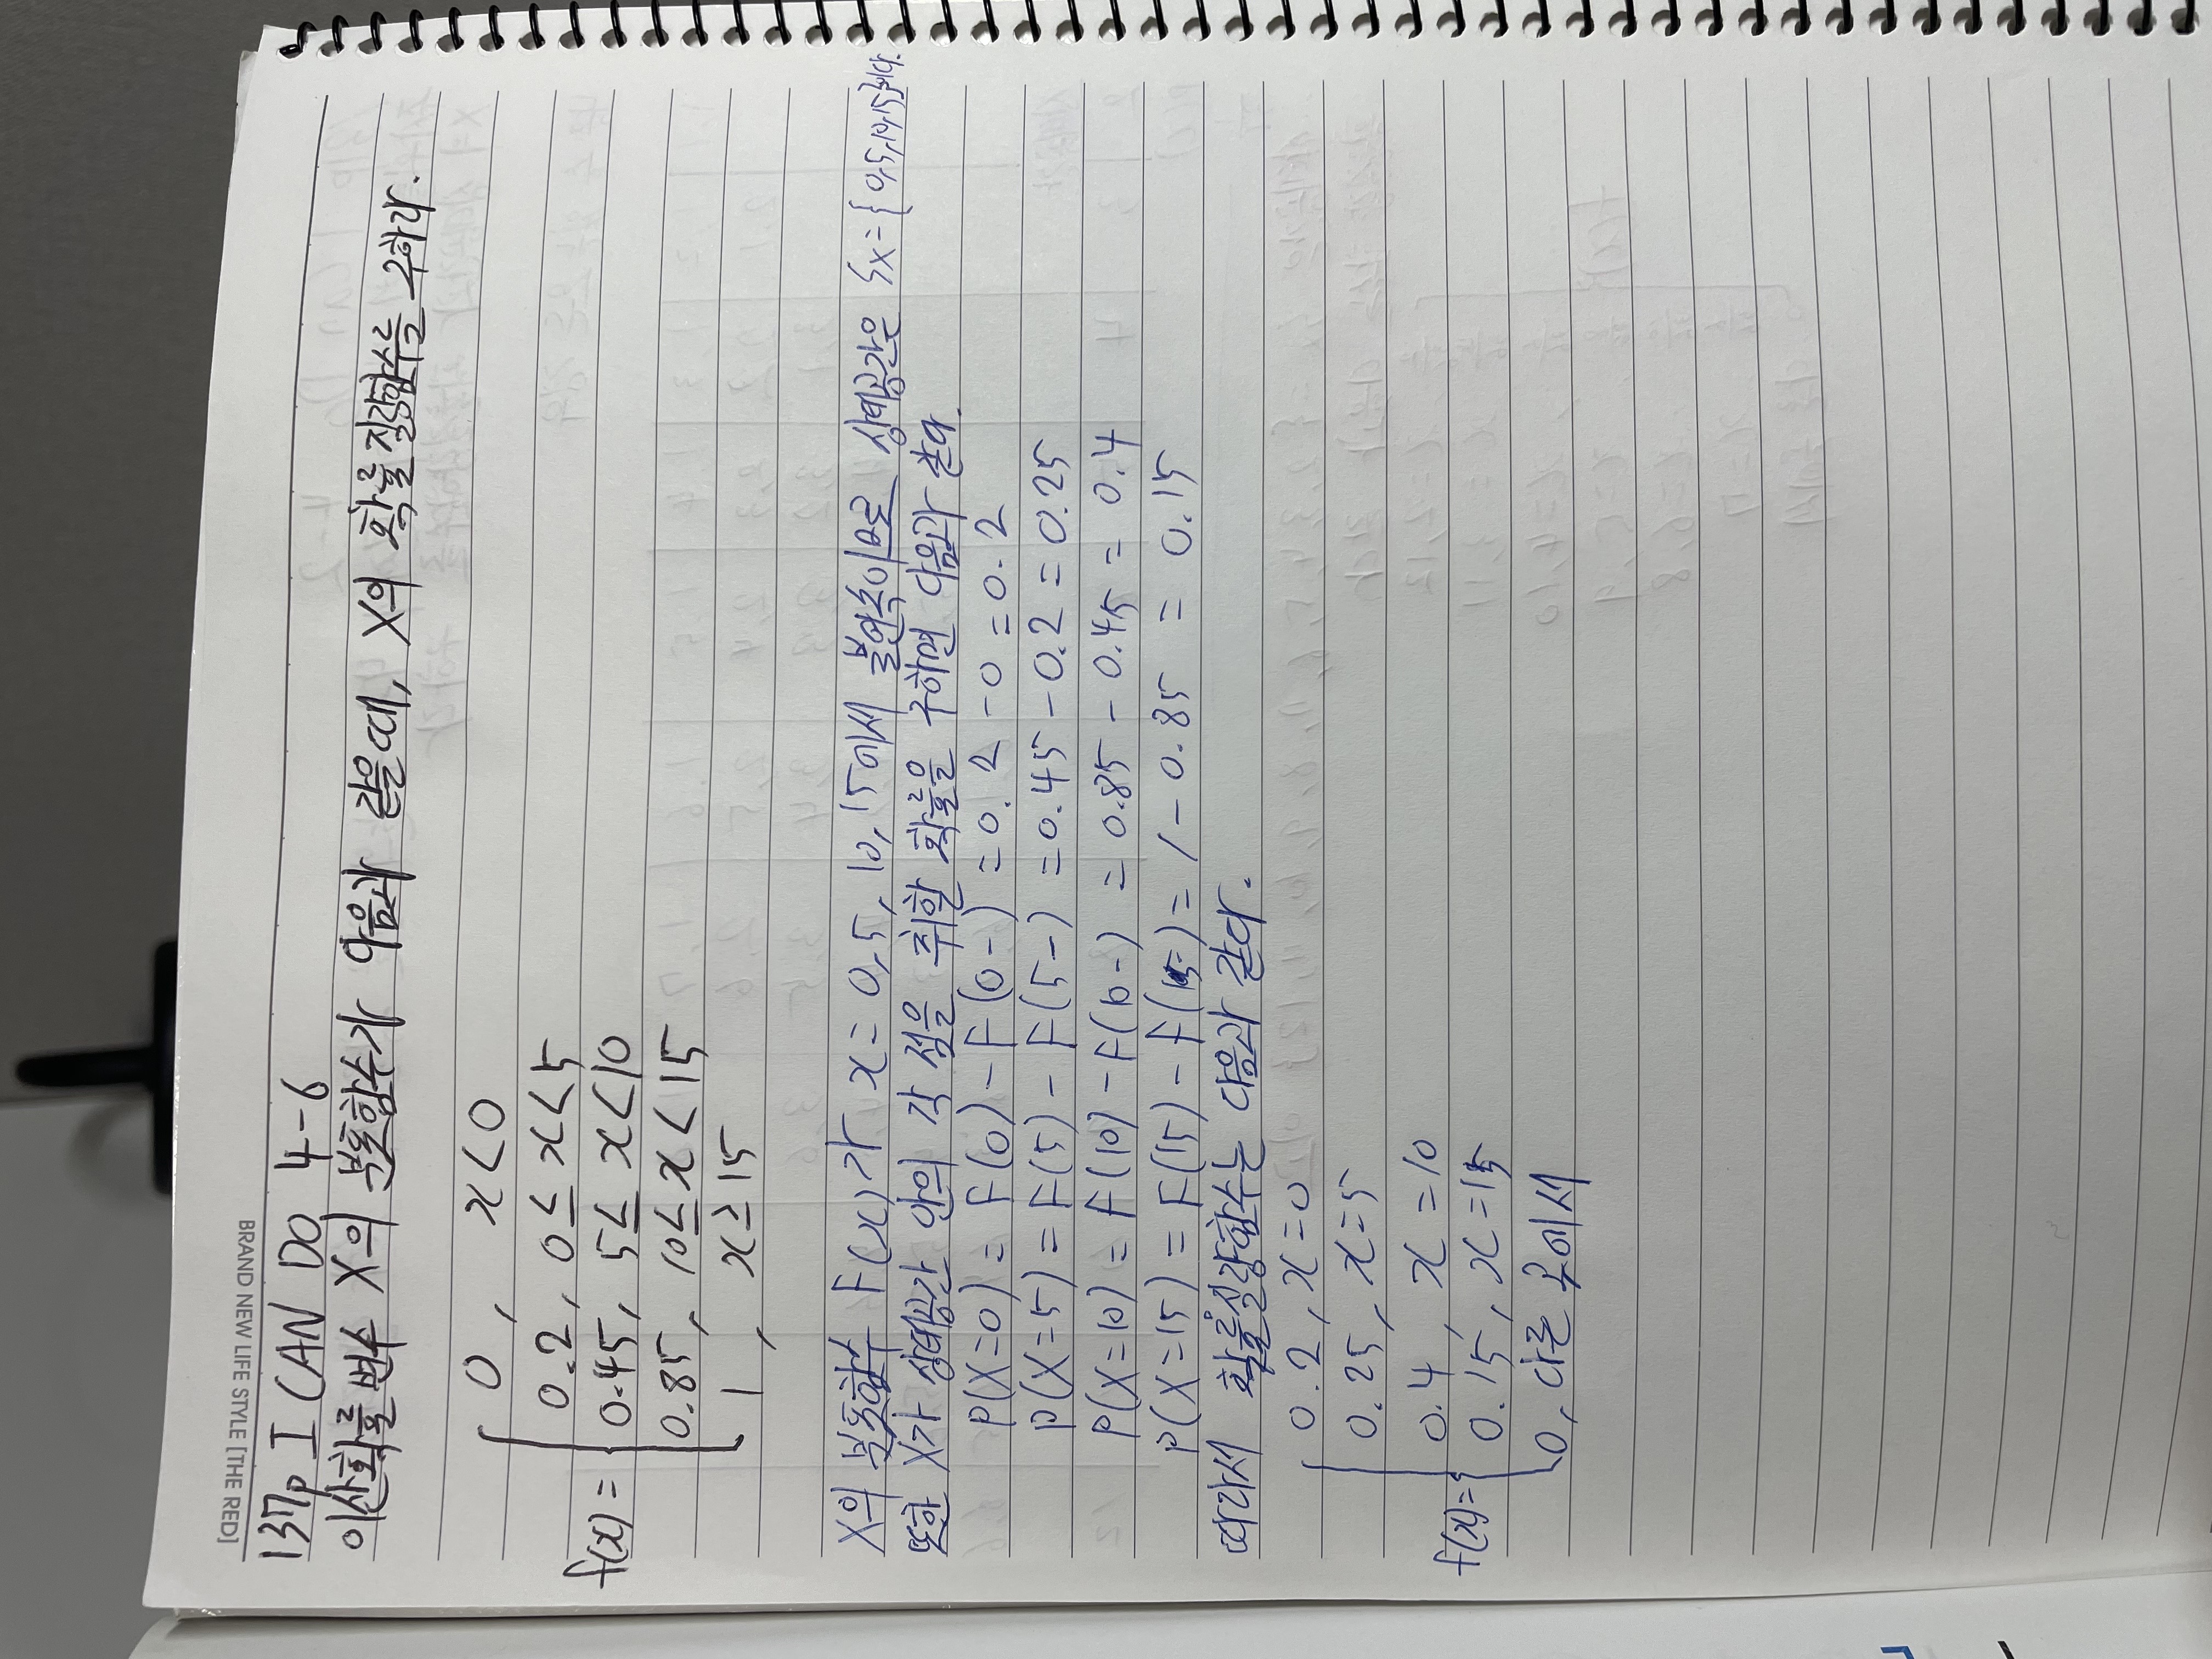 BRAND NEW LIFE STYLE [THE RED]
137p I CAN DO 4-6
이산확률변수 X의 분포함수가 다음과 같을때, X의 확률질량함수를 구하라.
0, x<0
0.2, 0≤x<5
f(x)= 0.45, 5≤x<10
0.85, 10≤x<15
1, x≥15
X의 분포함수 F(x)가 x=0,5,10,15에서 불연속이므로 상태공간은 Sx={0,5,10,15}이다.
또한 X가 상태공간 안의 각 점을 취할 확률을 구하면 다음과 같다.
P(X=0) = F(0)-F(0-) =0.2-0=0.2
P(X=5)=F(5)-F(5-) =0.45-0.2=0.25
P(X=10)=F(10)-F(10-) = 0.85-0.45= 0.4
P(X=15)=F(15)-F(15-)=1-0.85 = 0.15
따라서 확률질량함수는 다음과 같다.
0.2, x=0
0.25, x=5
0.4, x=10
f(x)= 0.15, x=15
0, 다른 곳에서